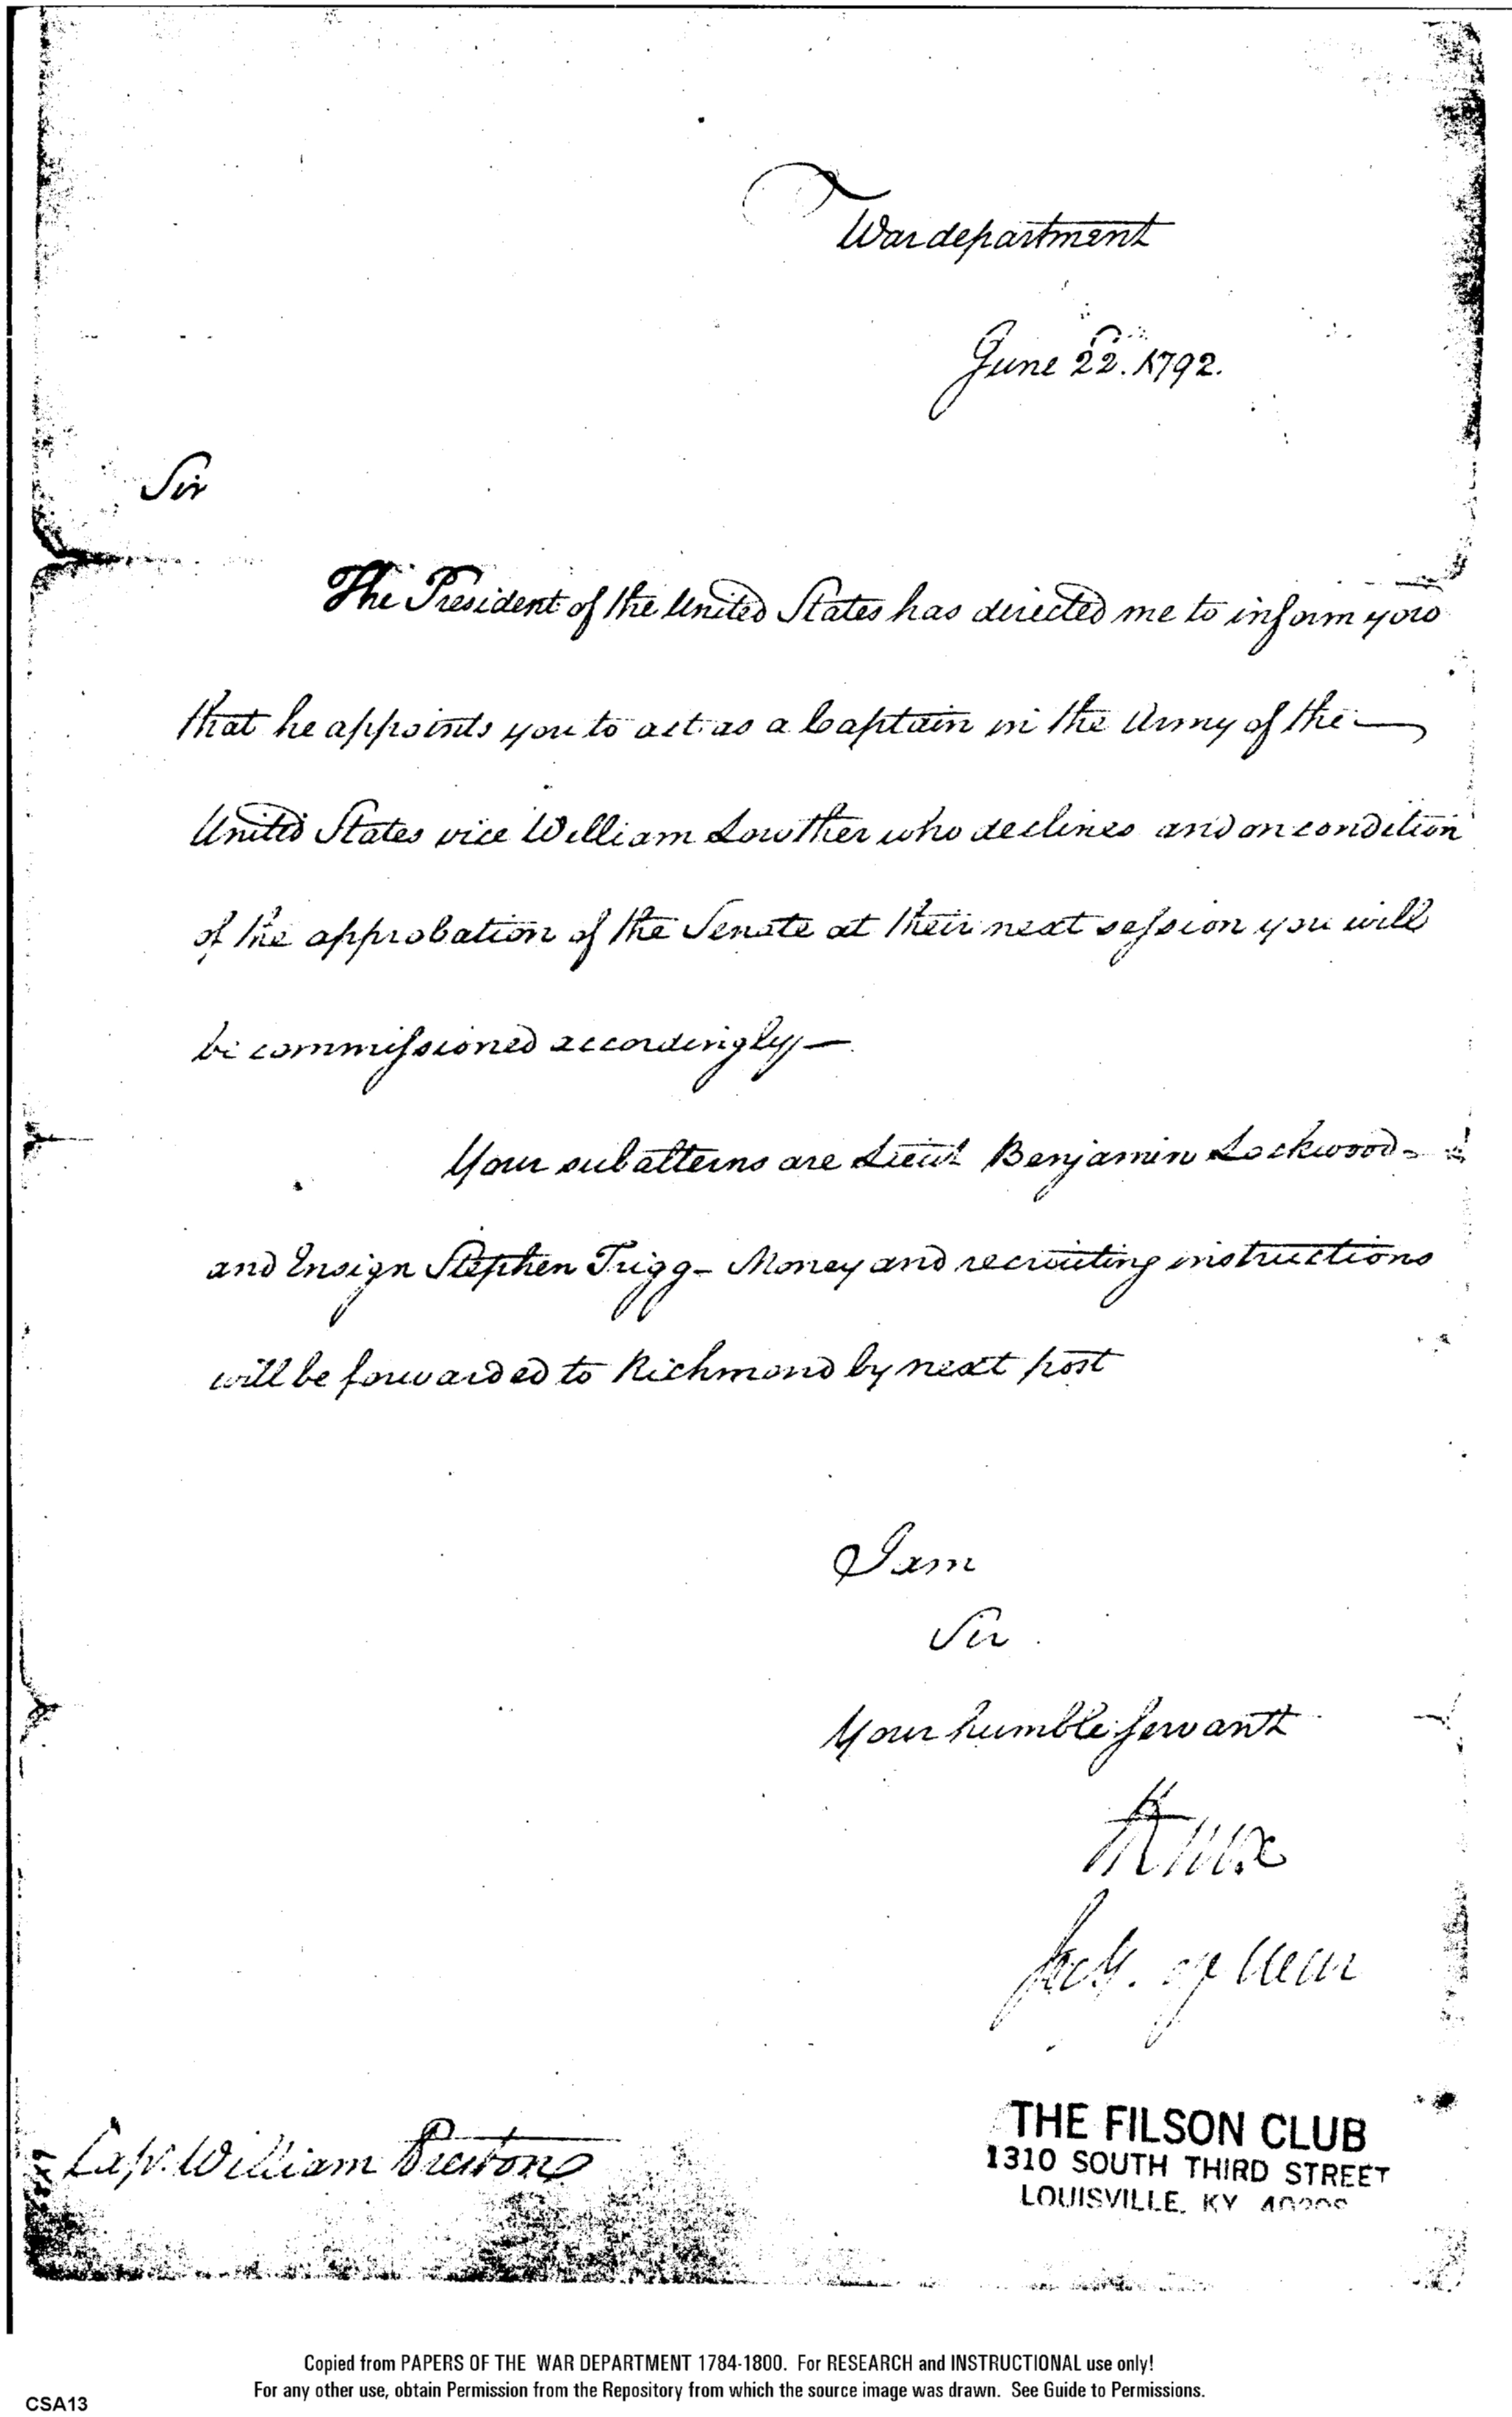 War department
June 22. 1792.
Sir
The President of the United States has directed me to inform you
that he appoints you to act as a Captain in the Army of the
United States vice William Lowther who declines and on condition
of the approbation of the Senate at their next session you will
be commissioned accordingly—
Your subalterns are Lieut Benjamin Lockwood-
and Ensign Stephen Trigg- Money and recruiting instructions
will be forwarded to Richmond by next post
I am
Sir
Your humble servant
HKnox
Secy. of War
Cap. William Preston
THE FILSON CLUB
1310 SOUTH THIRD STREET
LOUISVILLE, KY
Copied from PAPERS OF THE WAR DEPARTMENT 1784-1800. For RESEARCH and INSTRUCTIONAL use only!
For any other use, obtain Permission from the Repository from which the source image was drawn. See Guide to Permissions.
CSA13